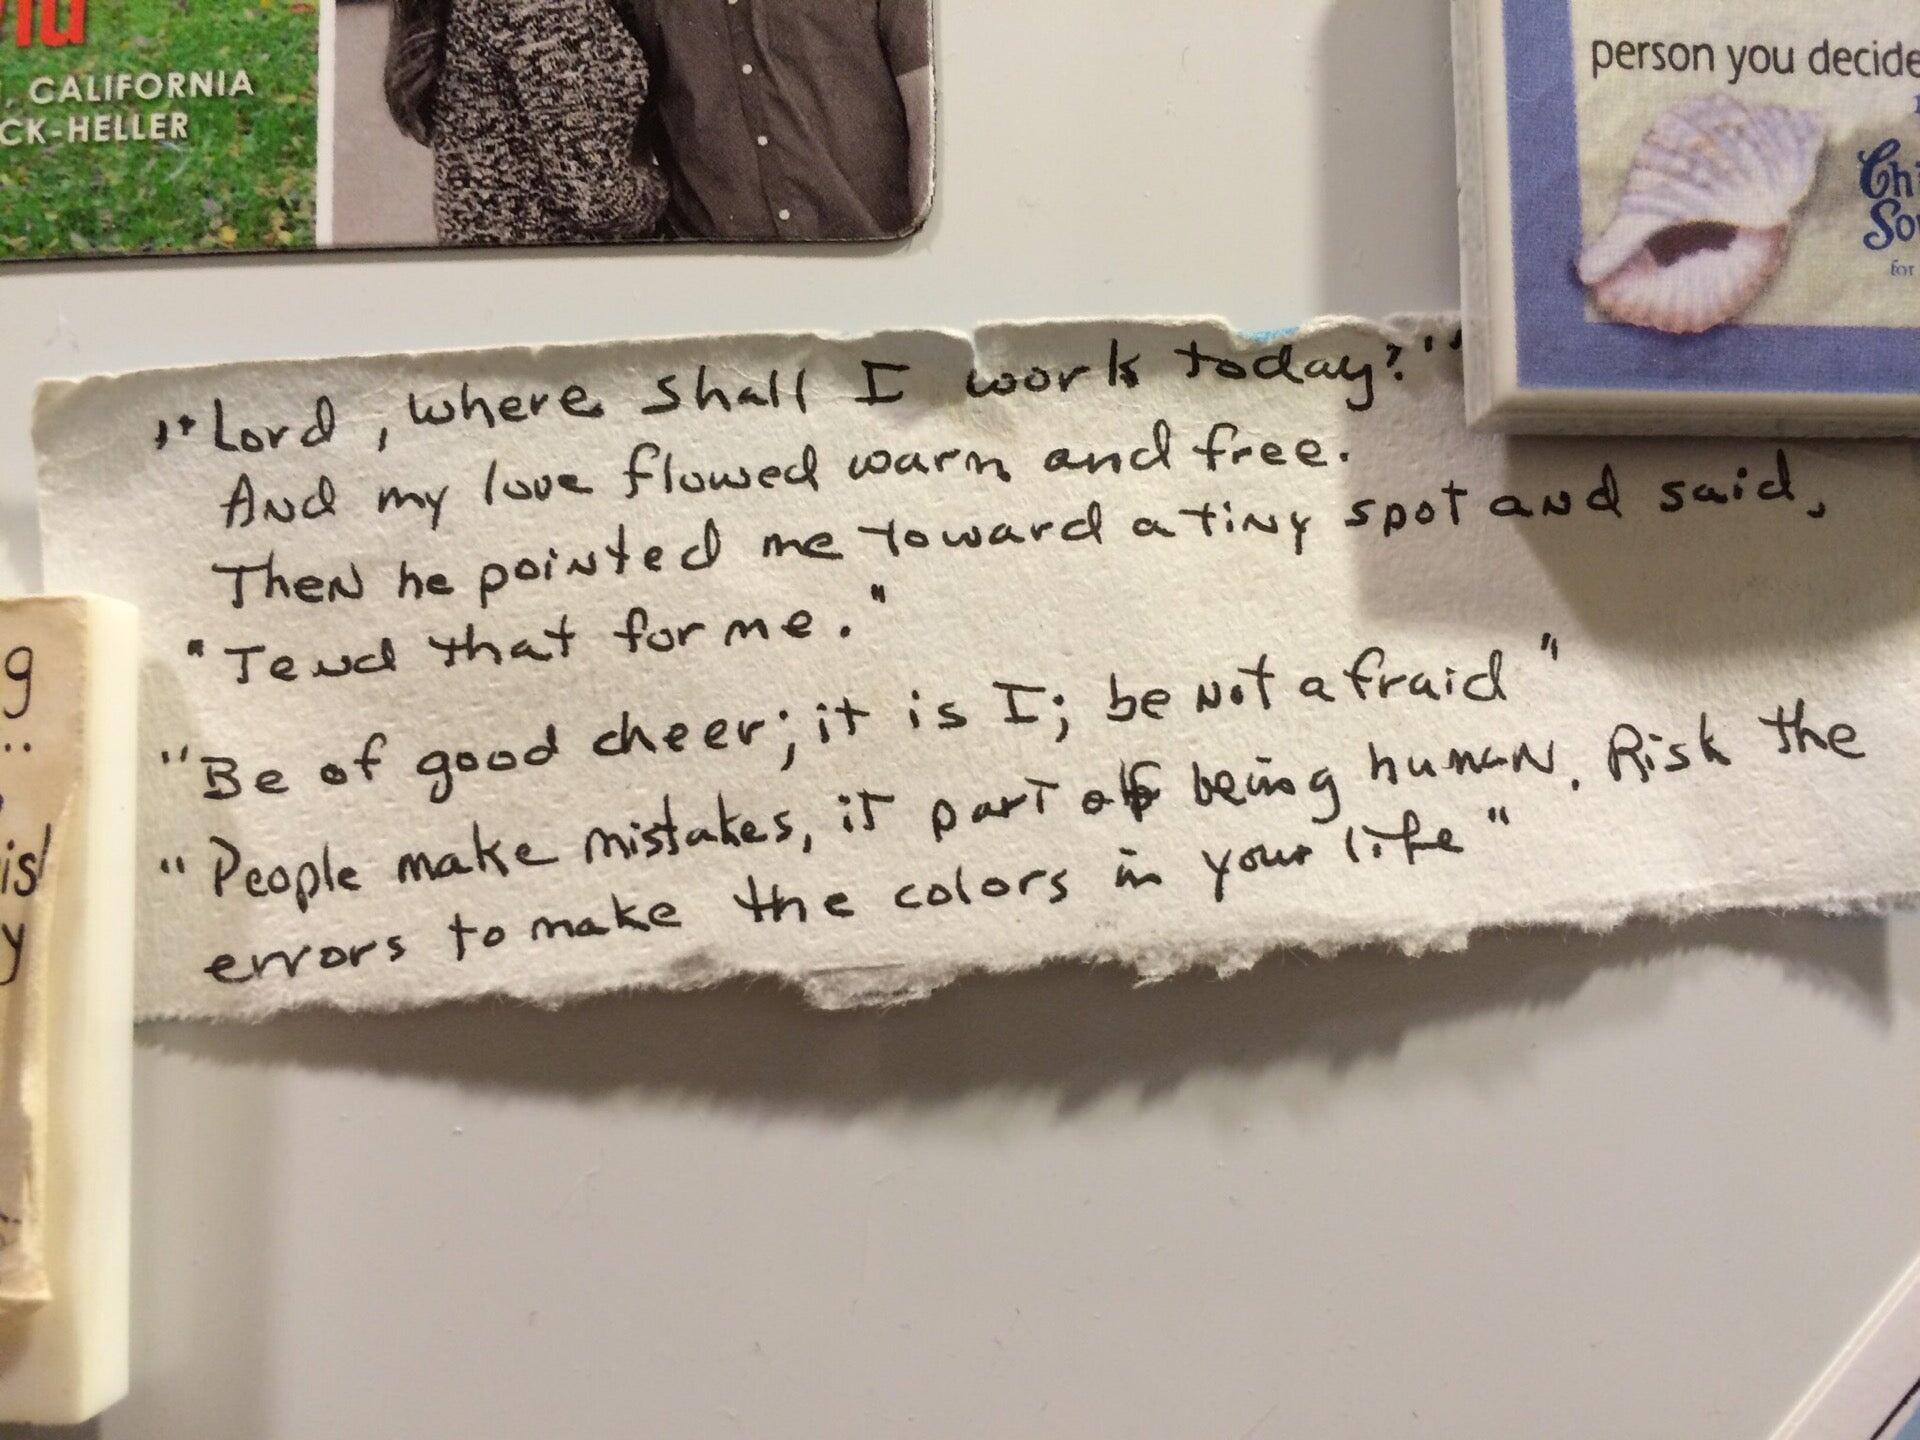 , CALIFORNIA
CK-HELLER
person you decide
for
"Lord, where shall I work today?"
And my love flowed warm and free.
Then he pointed me toward a tiny spot and said,
"Tend that for me."
"Be of good cheer; it is I; be not afraid"
"People make mistakes, it part of being human. Risk the
errors to make the colors in your life"
g
is
y